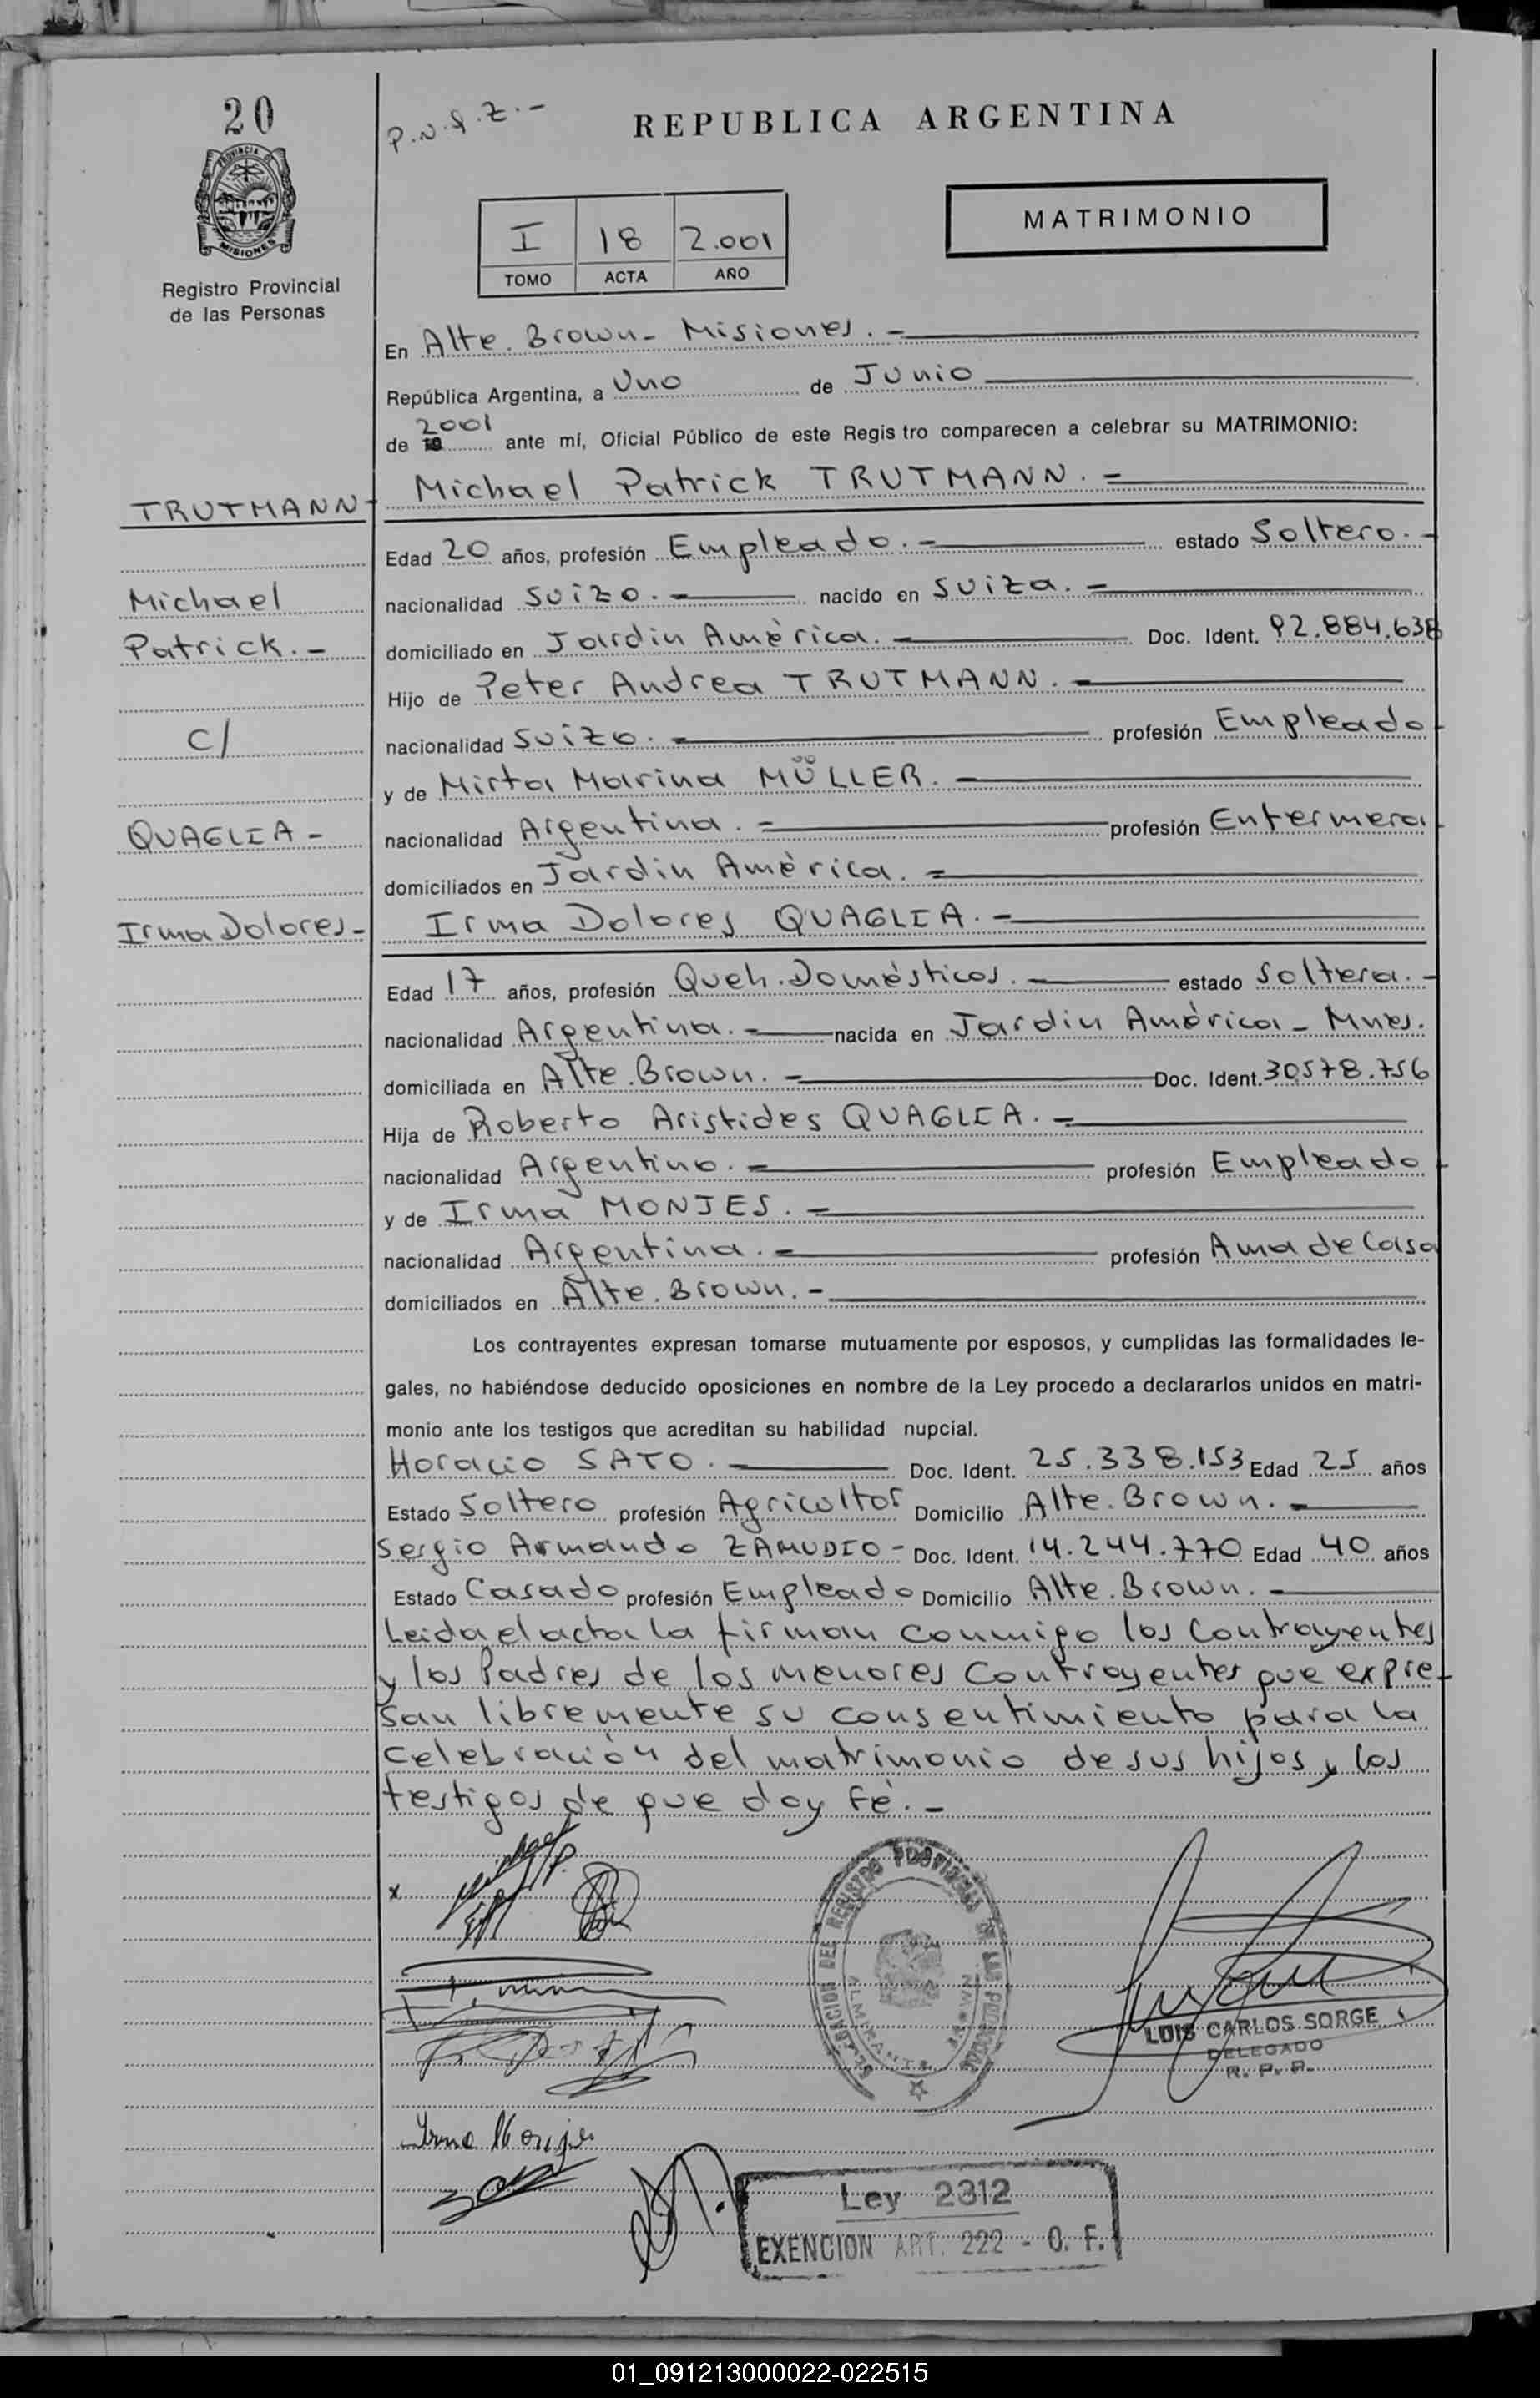 20
P.N.S.Z.-
REPUBLICA ARGENTINA
PROVINCIA DE
MISIONES
Registro Provincial
de las Personas
I 18 2.001
TOMO ACTA AÑO
MATRIMONIO
En Alte. Brown - Misiones. -
República Argentina, a Uno de Junio
2001
de 19 ante mí, Oficial Público de este Regis tro comparecen a celebrar su MATRIMONIO:
TRUTMANN - Michael Patrick TRUTMANN. -
Edad 20 años, profesión Empleado. - estado Soltero. -
Michael nacionalidad Suizo. - nacido en Suiza. -
Patrick. - domiciliado en Jardin Amèrica. - Doc. Ident. 92.884.638
Hijo de Peter Andrea TRUTMANN. -
C/ nacionalidad Suizo. - profesión Empleado -
y de Mirta Marina MÜLLER. -
QUAGLIA - nacionalidad Argentina. - profesión Enfermera -
domiciliados en Jardin Amèrica. -
Irma Dolores - Irma Dolores QUAGLIA. -
Edad 17 años, profesión Queh. Domésticos. - estado Soltera. -
nacionalidad Argentina. - nacida en Jardin Amèrica - Mnes.
domiciliada en Alte. Brown. - Doc. Ident. 30578.756
Hija de Roberto Aristides QUAGLIA. -
nacionalidad Argentino. - profesión Empleado -
y de Irma MONJES. -
nacionalidad Argentina. - profesión Ama de Casa
domiciliados en Alte. Brown. -
Los contrayentes expresan tomarse mutuamente por esposos, y cumplidas las formalidades le-
gales, no habiéndose deducido oposiciones en nombre de la Ley procedo a declararlos unidos en matri-
monio ante los testigos que acreditan su habilidad nupcial.
Horacio SATO. - Doc. Ident. 25.338.153 Edad 25 años
Estado Soltero profesión Agricultor Domicilio Alte. Brown. -
Sergio Armando ZAMUDIO - Doc. Ident. 14.244.770 Edad 40 años
Estado Casado profesión Empleado Domicilio Alte. Brown. -
Leida el acta la firman conmigo los Contrayentes
y los Padres de los menores Contrayentes que expre-
san libremente su consentimiento para la
celebración del matrimonio de sus hijos y los
testigos de que doy fè. -
x Michael P.
REGISTRO PROVINCIAL DE LAS PERSONAS
ALMIRANTE BROWN
LUIS CARLOS SORGE
DELEGADO
R. P. P.
Irma Monjes
Ley 2312
EXENCION ART. 222 - O. F.
01_091213000022-022515